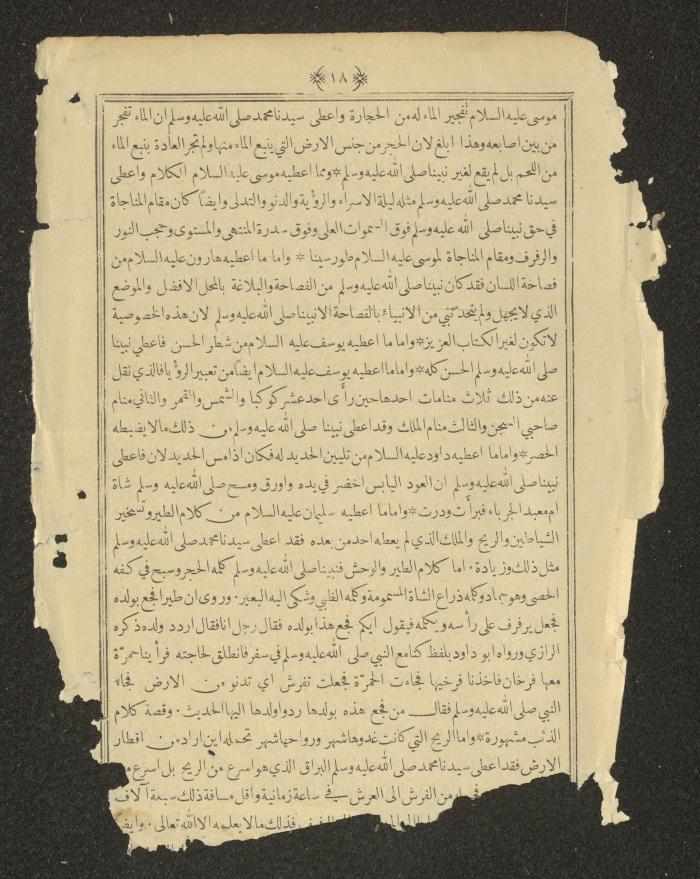 ١٨
موسى عليه السلام تفجير الماء له من الحجارة واعطى سيدنا محمد صلى الله عليه وسلم ان الماء تفجر
من بين اصابعه وهذا ابلغ لان الحجر من جنس الارض التي ينبع الماء منها ولم تجر العادة بنبع الماء
من اللحم بل لم يقع لغير نبينا صلى الله عليه وسلم * ومما اعطيه موسى عليه السلام الكلام واعطى
سيدنا محمد صلى الله عليه وسلم مثله ليلة الاسراء والرؤية والدنو والتدلى وايضاً كان مقام المناجاة
في حق نبينا صلى الله عليه وسلم فوق السموات العلى وفوق سدرة المنتهى والمستوى وحجب النور
والرفرف ومقام المناجاة لموسى عليه السلام طور سينا * واما ما اعطيه هارون عليه السلام من
فصاحة اللسان فقد كان نبينا صلى الله عليه وسلم من الفصاحة والبلاغة بالمحل الافضل والموضع
الذي لا يجهل ولم يتحد نبي من الانبياء بالفصاحة الا نبينا صلى الله عليه وسلم لان هذه الخصوصية
لا تكون لغير الكتاب العزيز * واما ما اعطيه يوسف عليه السلام من شطر الحسن فاعطي نبينا
صلى الله عليه وسلم الحسن كله * واما ما اعطيه يوسف عليه السلام ايضاً من تعبير الرؤيا فالذي نقل
عنه من ذلك ثلاث منامات احدها حين رأى احد عشر كوكبا والشمس والقمر والثاني منام
صاحبي السجن والثالث منام الملك وقد اعطى نبينا صلى الله عليه وسلم من ذلك ما لا يضبطه
الحصر * واما ما اعطيه داود عليه السلام من تليين الحديد له فكان اذا مس الحديد لان فاعطى
نبينا صلى الله عليه وسلم ان العود اليابس اخضر في يده واورق ومسح صلى الله عليه وسلم شاة
ام معبد الجرباء فبرأت ودرت * واما ما اعطيه سليمان عليه السلام من كلام الطير وتسخير
الشياطين والريح والملك الذي لم يعطه احد من بعده فقد اعطى سيدنا محمد صلى الله عليه وسلم
مثل ذلك وزيادة . اما كلام الطير والوحش فنبينا صلى الله عليه وسلم كلمه الحجر وسبح في كفه
الحصى وهو جماد وكلمه ذراع الشاة المسمومة وكلمه الظبي وشكى اليه البعير . وروى ان طيرا فجع بولده
فجعل يرفرف على رأسه ويكلمه فيقول ايكم فجع هذا بولده فقال رجل انا فقال اردد ولده ذكره
الرازي ورواه ابو داود بلفظ كنا مع النبي صلى الله عليه وسلم في سفر فانطلق لحاجته فرأينا حمرة
معها فرخان فاخذنا فرخيها فجاءت الحمرة فجعلت تفرش اي تدنو من الارض فجاء
النبي صلى الله عليه وسلم فقال من فجع هذه بولدها ردوا ولدها اليها الحديث . وقصة كلام
الذئب مشهورة * واما الريح التي كانت غدوها شهر ورواحها شهر تحمله اين اراد من اقطار
الارض فقد اعطى سيدنا محمد صلى الله عليه وسلم البراق الذي هو اسرع من الريح بل اسرع من
من الفرش الى العرش في ساعة زمانية واقل مسافة ذلك سبعة آلاف
فذلك ما لا يعلمه الا الله تعالى .